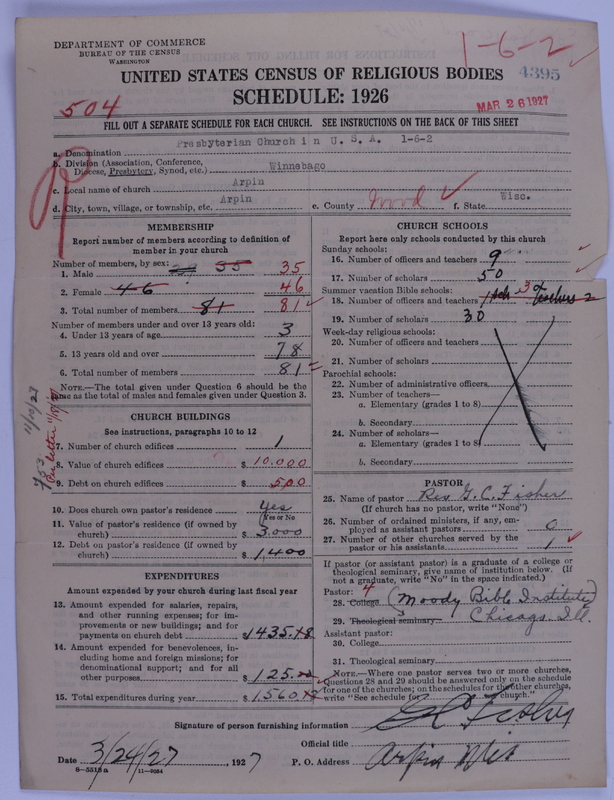 DEPARTMENT OF COMMERCE
BUREAU OF THE CENSUS
WASHINGTON
1-6-2
UNITED STATES CENSUS OF RELIGIOUS BODIES
4395
SCHEDULE: 1926
504
MAR 26 1927
FILL OUT A SEPARATE SCHEDULE FOR EACH CHURCH. SEE INSTRUCTIONS ON THE BACK OF THIS SHEET
a. Denomination Presbyterian Church in U. S. A. 1-6-2
b. Division (Association, Conference, Diocese, Presbytery, Synod, etc.) Winnebago
c. Local name of church Arpin
d. City, town, village, or township, etc. Arpin e. County Wood f. State Wisc.
MEMBERSHIP
Report number of members according to definition of
member in your church
Number of members, by sex:
1. Male 55 35
2. Female 46 46
3. Total number of members 81 81
Number of members under and over 13 years old:
4. Under 13 years of age 3
5. 13 years old and over 78
6. Total number of members 81
NOTE.—The total given under Question 6 should be the
same as the total of males and females given under Question 3.
CHURCH BUILDINGS
See instructions, paragraphs 10 to 12
7. Number of church edifices 1
8. Value of church edifices $ 10,000
9. Debt on church edifices $ 500
10. Does church own pastor's residence yes
(Yes or No)
11. Value of pastor's residence (if owned by
church) $ 3,000
12. Debt on pastor's residence (if owned by
church) $ 1,400
EXPENDITURES
Amount expended by your church during last fiscal year
13. Amount expended for salaries, repairs,
and other running expenses; for im-
provements or new buildings; and for
payments on church debt $ 1435.
14. Amount expended for benevolences, in-
cluding home and foreign missions; for
denominational support; and for all
other purposes $ 125.
15. Total expenditures during year $ 1560.
CHURCH SCHOOLS
Report here only schools conducted by this church
Sunday schools:
16. Number of officers and teachers 9
17. Number of scholars 50
Summer vacation Bible schools:
18. Number of officers and teachers 3 teachers 2
19. Number of scholars 30
Week-day religious schools:
20. Number of officers and teachers
21. Number of scholars
Parochial schools:
22. Number of administrative officers
23. Number of teachers—
a. Elementary (grades 1 to 8)
b. Secondary
24. Number of scholars—
a. Elementary (grades 1 to 8)
b. Secondary
PASTOR
25. Name of pastor Rev G. C. Fisher
(If church has no pastor, write "None")
26. Number of ordained ministers, if any, em-
ployed as assistant pastors 0
27. Number of other churches served by the
pastor or his assistants 1
If pastor (or assistant pastor) is a graduate of a college or
theological seminary, give name of institution below. (If
not a graduate, write "No" in the space indicated.)
Pastor: 4
28. College (Moody Bible Institute)
29. Theological seminary Chicago. Ill.
Assistant pastor:
30. College
31. Theological seminary
NOTE.—Where one pastor serves two or more churches,
Questions 28 and 29 should be answered only on the schedule
for one of the churches; on the schedules for the other churches,
write "See schedule for church."
Signature of person furnishing information G C Fisher
Official title
Date 3/24/27, 1927 P. O. Address Arpin Wis
6-5518a 11-9064